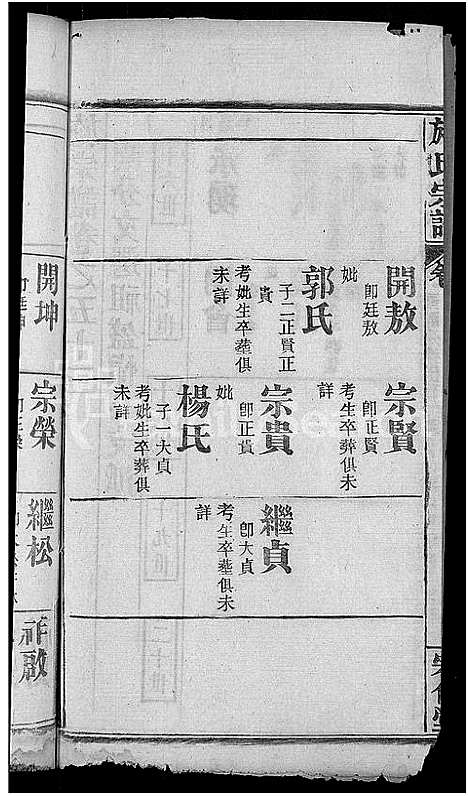 氏宗譜
開敖
即廷敖
妣
郭氏
子二正賢正
貴
考妣生卒葬俱
未詳
宗賢
即正賢
考生卒葬俱未
詳
宗貴
即正貴
妣
楊氏
子一大貞
考妣生卒葬俱
未詳
繼貞
即大貞
考生卒葬俱未
詳
開坤
宗榮
繼松
祥啟